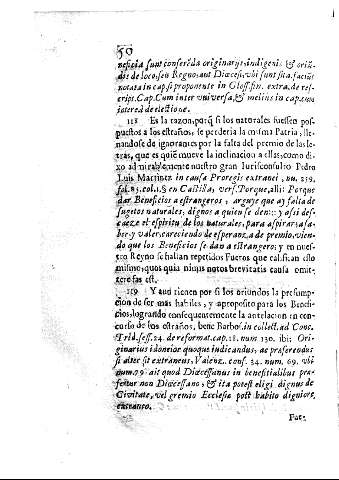 50
neficia sunt conferẽda originarijs, indigenis & oriũ-
dis de loco, seu Regno, aut Diœcesi, vbi sunt sita, faciũt
notata in cap. si proponente in Gloss. fin. extra. de res-
cript. Cap. Cum inter vniversa, & melius in cap. cum
interea de electione.
118 Es la razon, porq̃ si los naturales fuessen pos-
puestos a los estraños, se perderia la misma Patria, lle-
nandose de ignorantes por la falta del premio de las le-
tras, que es quiẽ mueve la inclinacion a ellas, como di-
xo admirablemente nuestro gran Jurisconsulto Pedro
Luis Martinez in causa Proregis extranei, nu. 239.
fol. 83. col. 1. § en Castilla, vers. Porque, alli: Porque
dar Beneficios a estrangeros, arguye que ay falta de
sugetos naturales, dignos a quien se den: y assi des-
caeze el espiritu de los naturales, para aspirar, a sa-
ber, y valer, careciendo de esperança, de premio, vien-
do que los Beneficios se dan a estrangeros; y en nues-
tro Reyno se hallan repetidos Fueros que califican esto
mismo, quos quia nimis notos brevitatis causa omit-
tere fas est.
119 Y aun tienen por si los oriundos la presump-
cion de ser mas habiles, y aproposito para los Benefi-
cios, logrando consequentemente la antelacion en con-
curso de los estraños, bene Barbos. in collect. ad Conc.
Trid. sess. 24. de reformat. cap. 18. num. 130. ibi: Ori-
ginarius idoneior quoque iudicandus, ac præferendus
si alter sit extraneus, Valenz. cons. 34. num. 69. vbi
num. 79 ait quod Diœcesanus in benefitialibus præ-
fertur non Diœcesano, & ita potest eligi dignus de
Civitate, vel gremio Ecclesiæ post habito digniore
extraneo.
Pat-